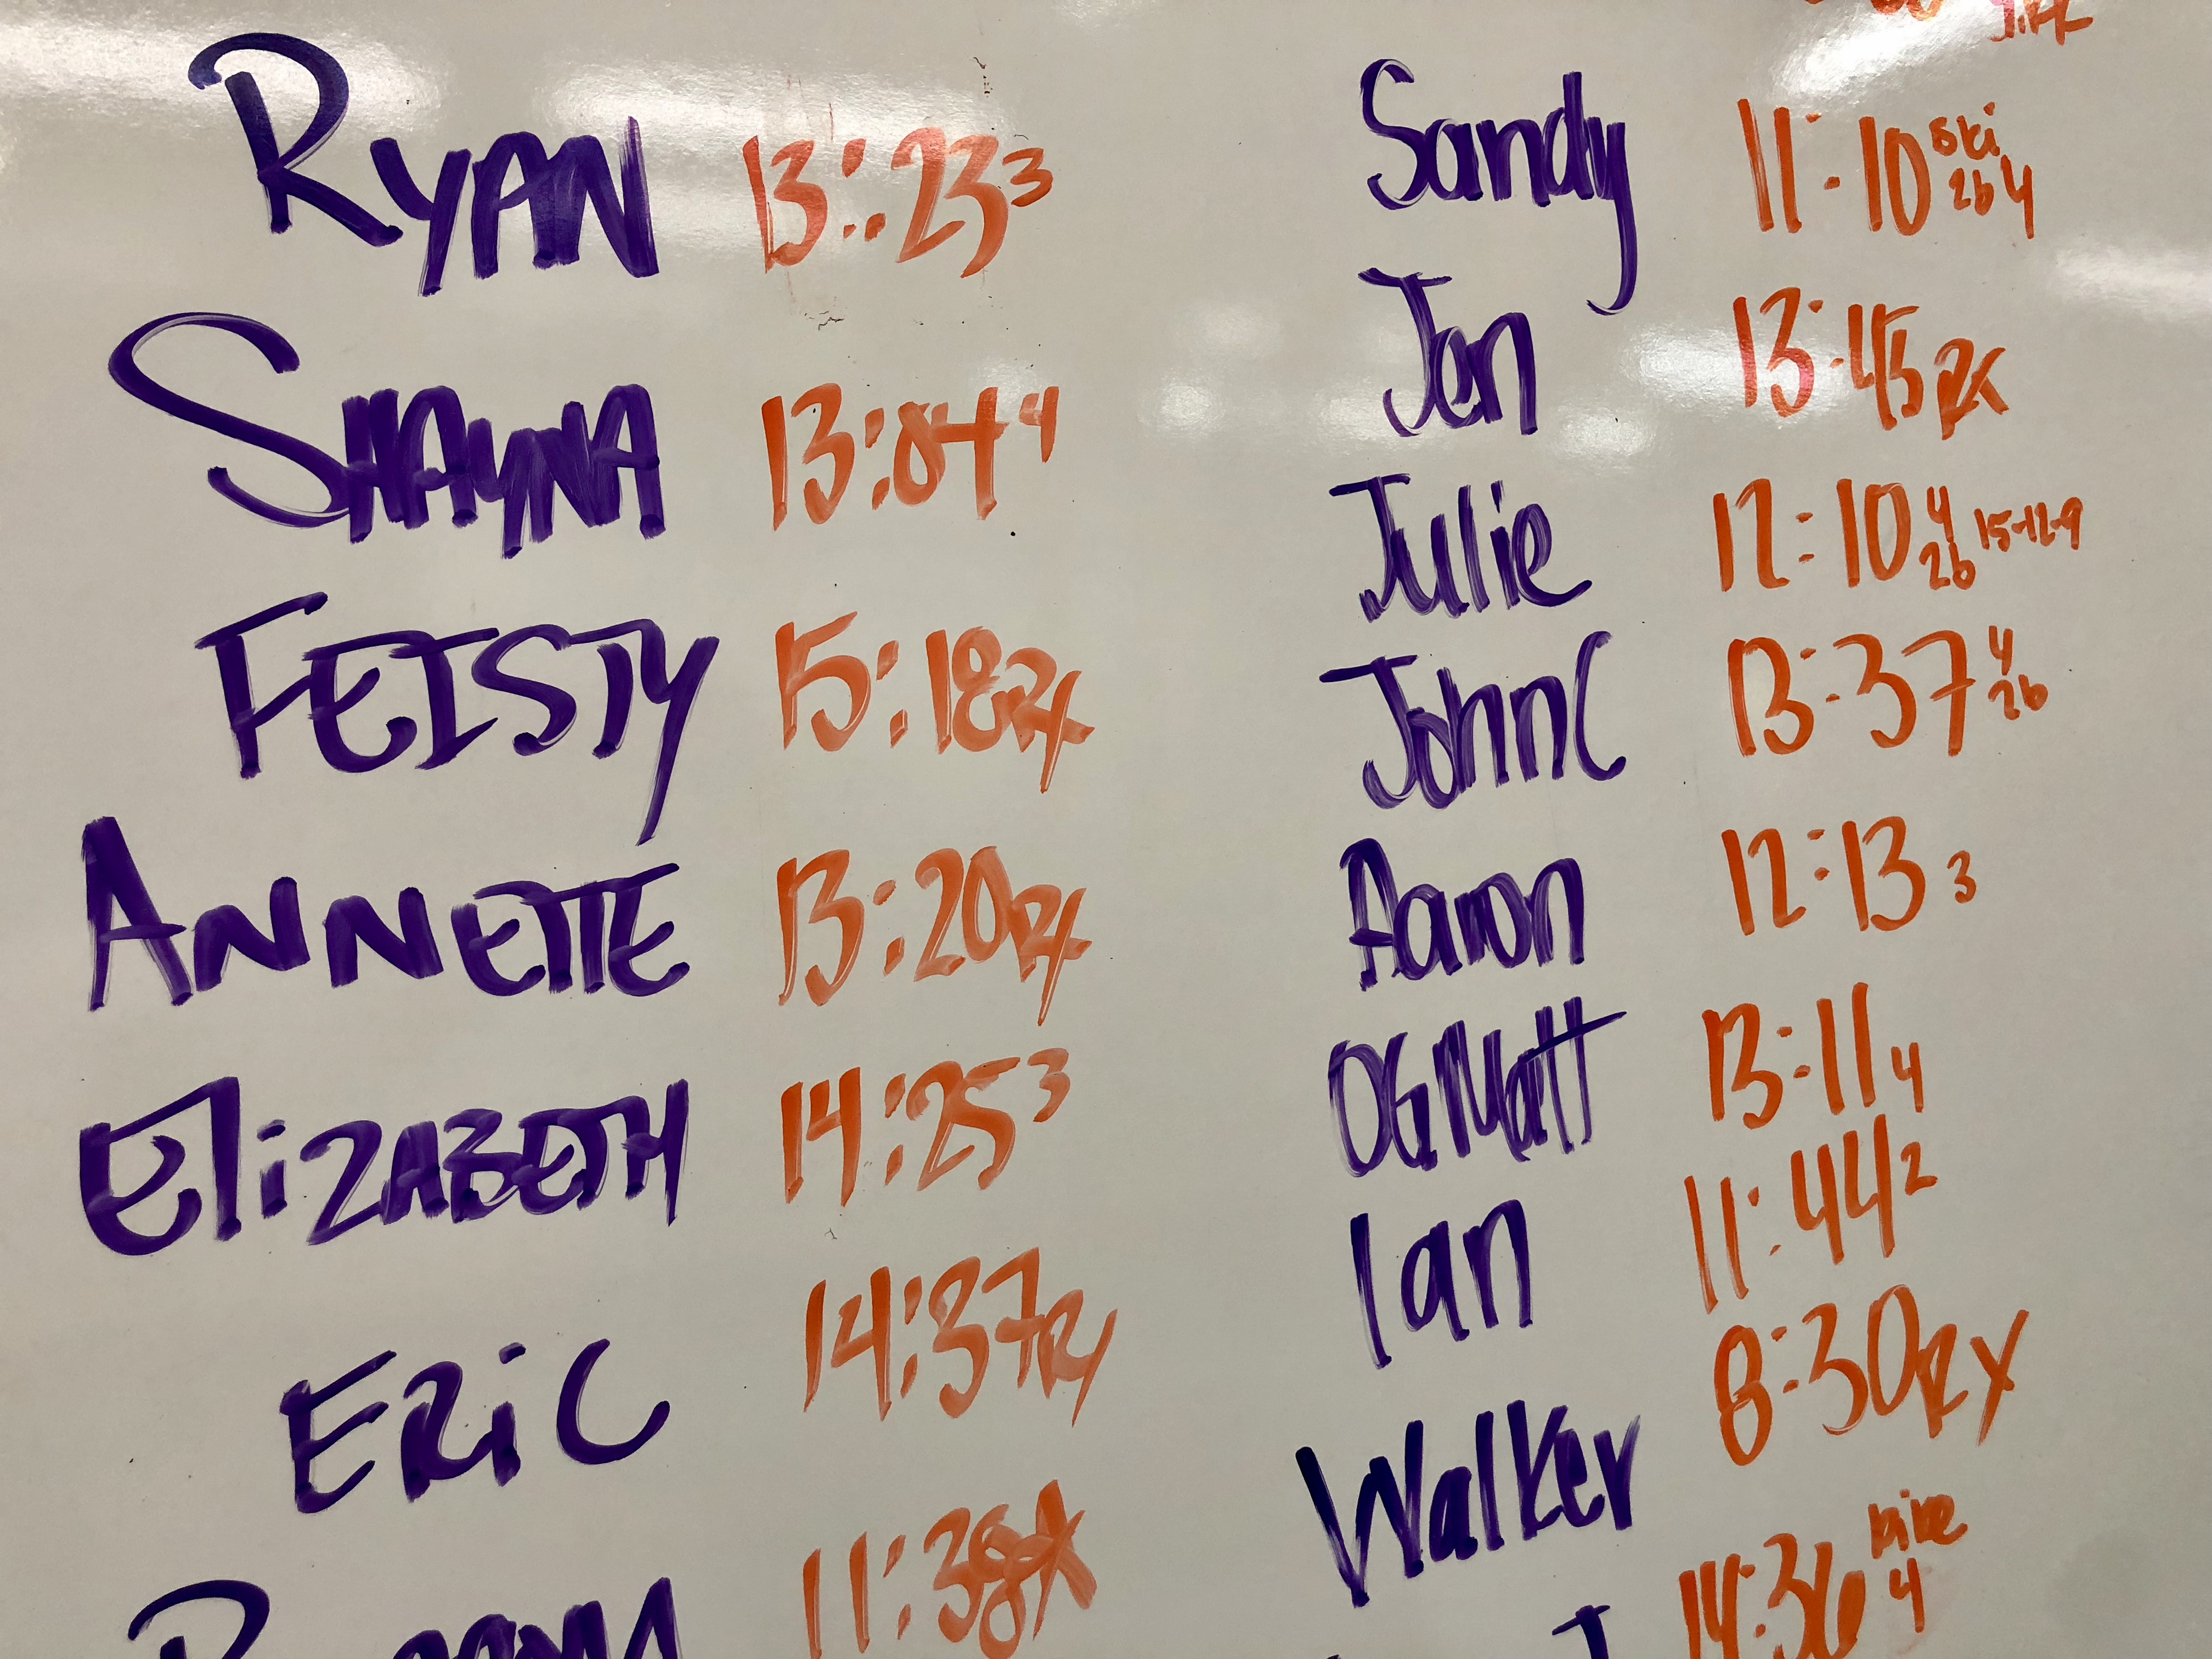 RYAN 13:23 3
SHAYNA 13:04 4
FEISTY 15:18 RX
ANNETTE 13:20 RX
ElizABETH 14:25 3
ERiC 14:37 RX
11:38 RX
Sandy 11:10 ski 26 4
Jen 13:45 RX
Julie 12:10 4 26 15-12-9
John C 13:37 4 26
Aaron 12:13 3
OG Matt 13:11 4
Ian 11:44 2
Walker 8:30 RX
14:36 bike 4